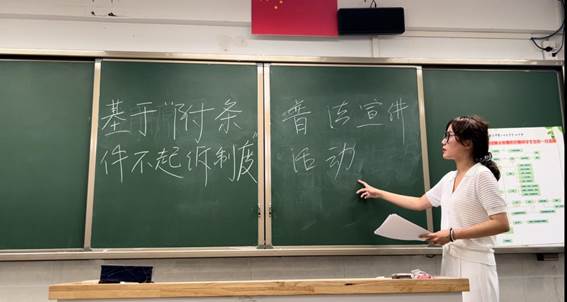 基于“附条
件不起诉制度”
普法宣传
活动